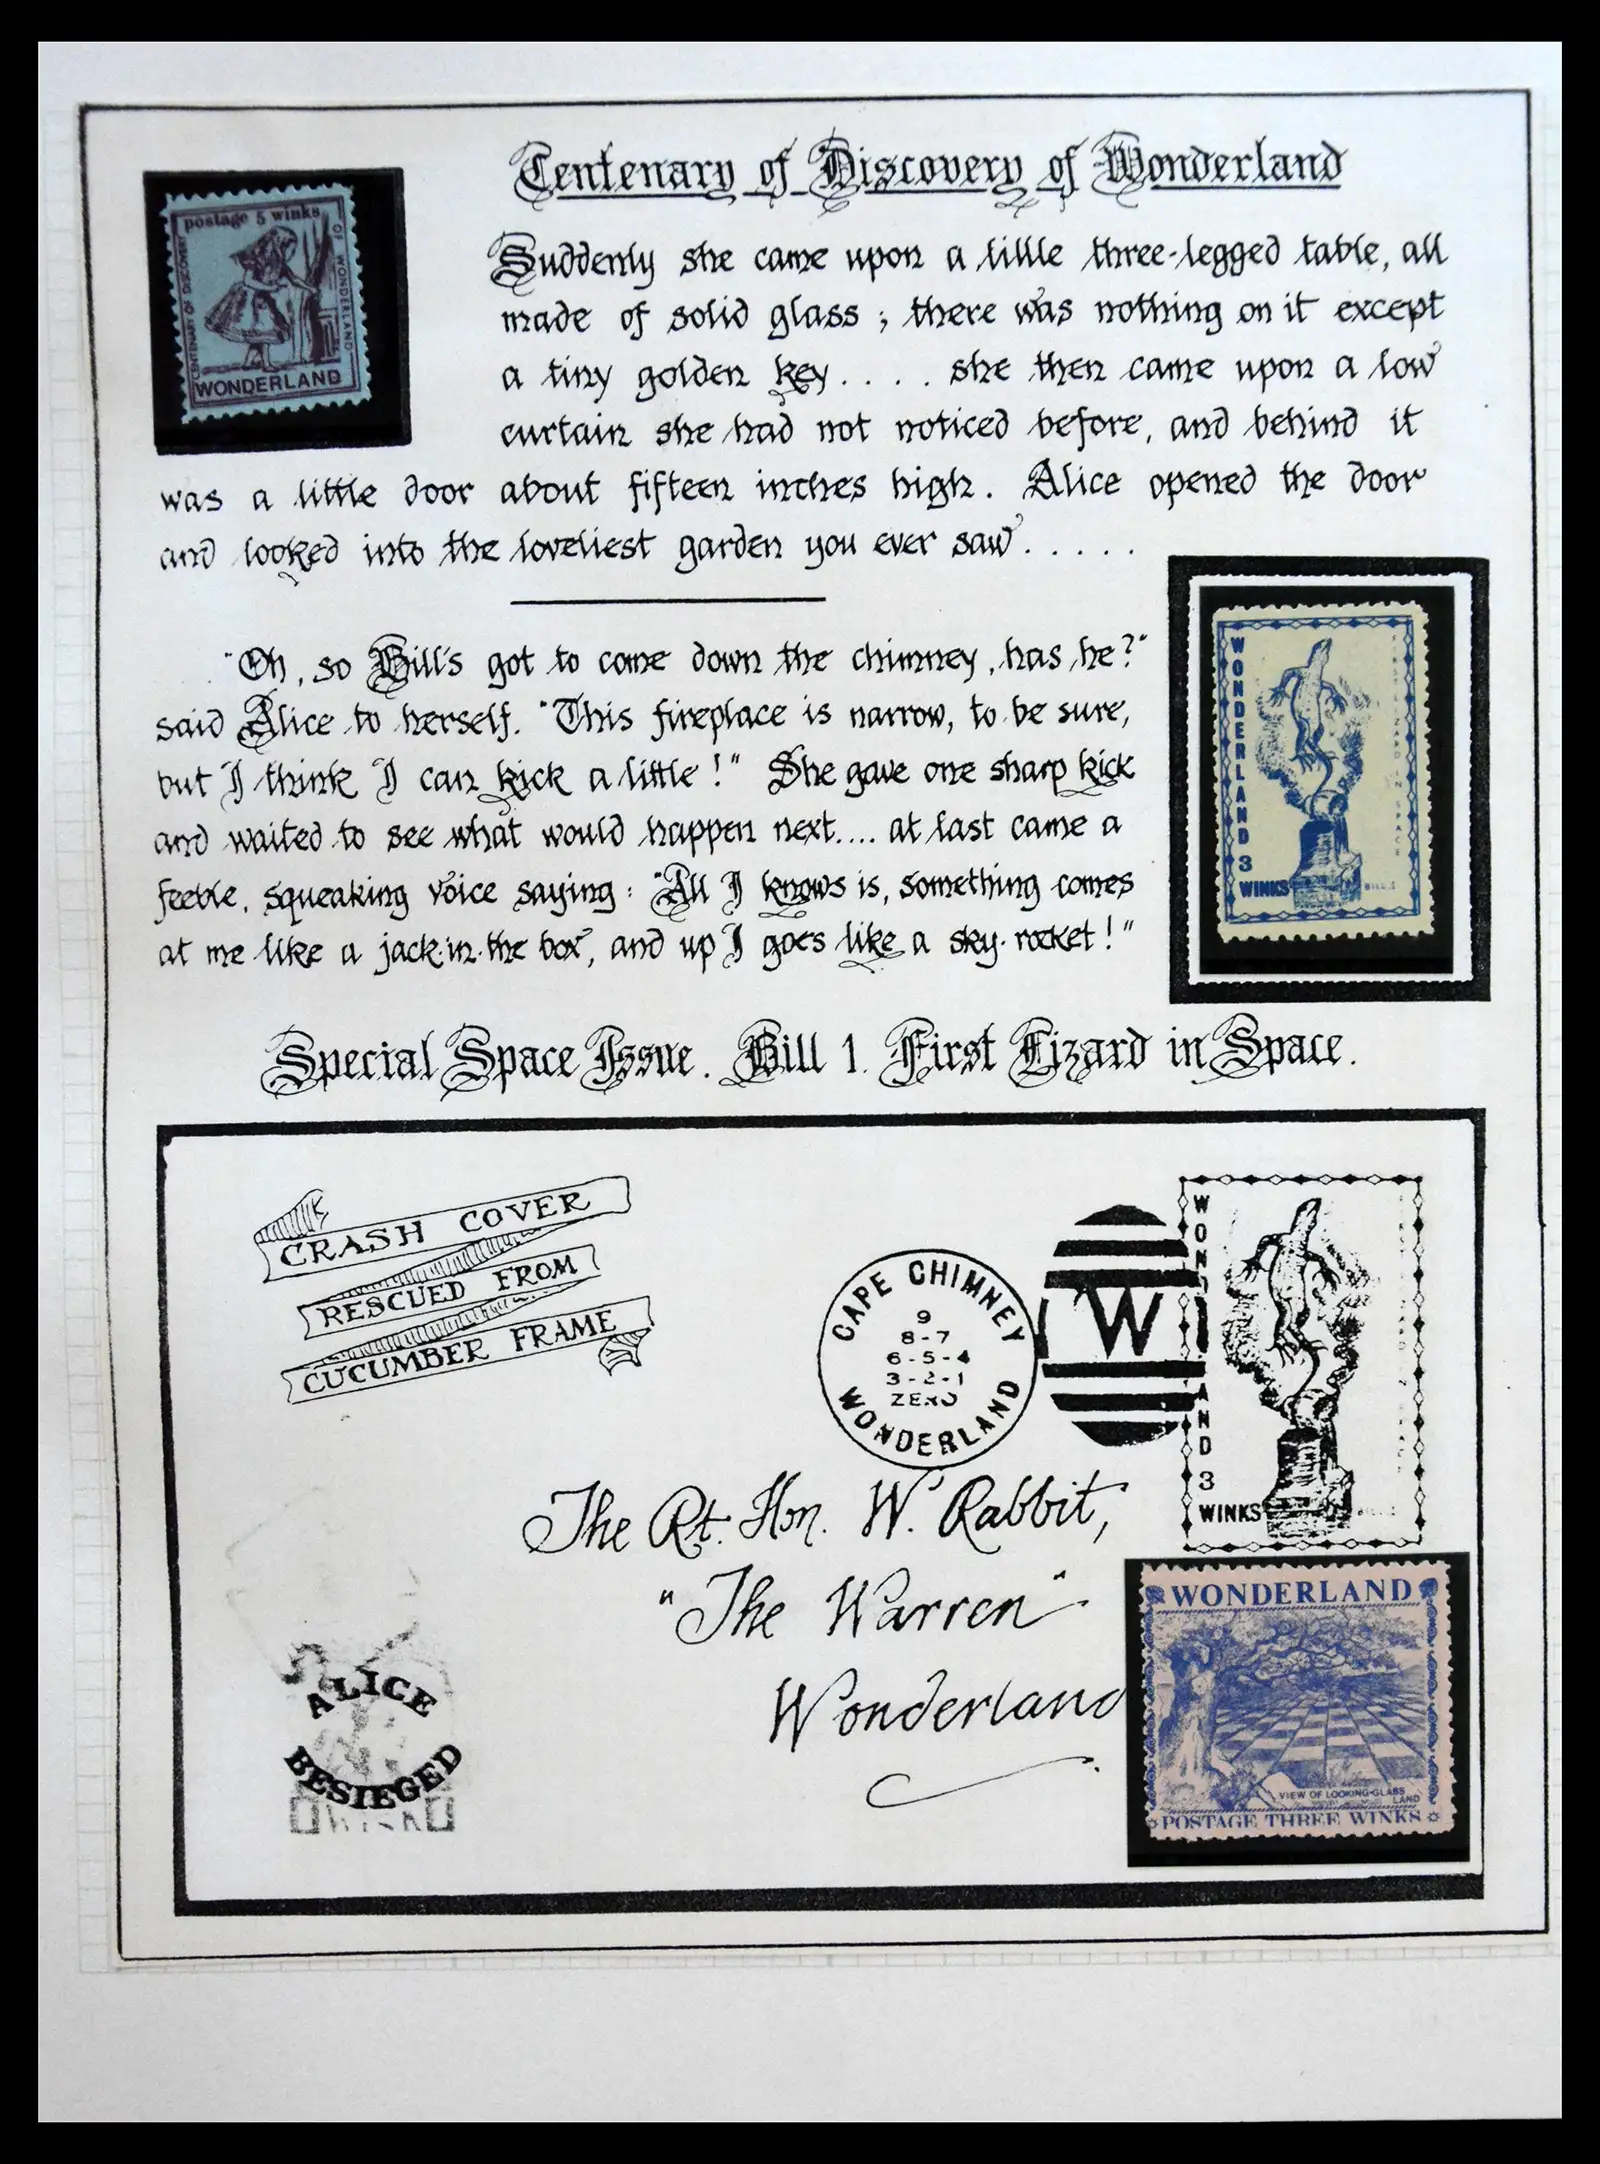 Centenary of Discovery of Wonderland
postage 5 winks
CENTENARY OF DISCOVERY
OF WONDERLAND
WONDERLAND
Suddenly she came upon a little three-legged table, all
made of solid glass ; there was nothing on it except
a tiny golden key . . . . she then came upon a low
curtain she had not noticed before, and behind it
was a little door about fifteen inches high. Alice opened the door
and looked into the loveliest garden you ever saw . . . . .
"Oh, so Bill's got to come down the chimney, has he?"
said Alice to herself. "This fireplace is narrow, to be sure,
but I think I can kick a little!" She gave one sharp kick
and waited to see what would happen next.... at last came a
feeble, squeaking voice saying: "All I knows is, something comes
at me like a jack-in-the box, and up I goes like a sky-rocket!"
WONDERLAND 3
WINKS
FIRST LIZARD IN SPACE
BILL 1
Special Space Issue. Bill 1. First Lizard in Space.
CRASH COVER
RESCUED FROM
CUCUMBER FRAME
CAPE CHIMNEY
9
8-7
6-5-4
3-2-1
ZERO
WONDERLAND
W
WOND AND 3
WINKS
The Rt. Hon. W. Rabbit,
"The Warren"
Wonderland
ALICE
BESIEGED
WONDERLAND
VIEW OF LOOKING-GLASS
LAND
POSTAGE THREE WINKS